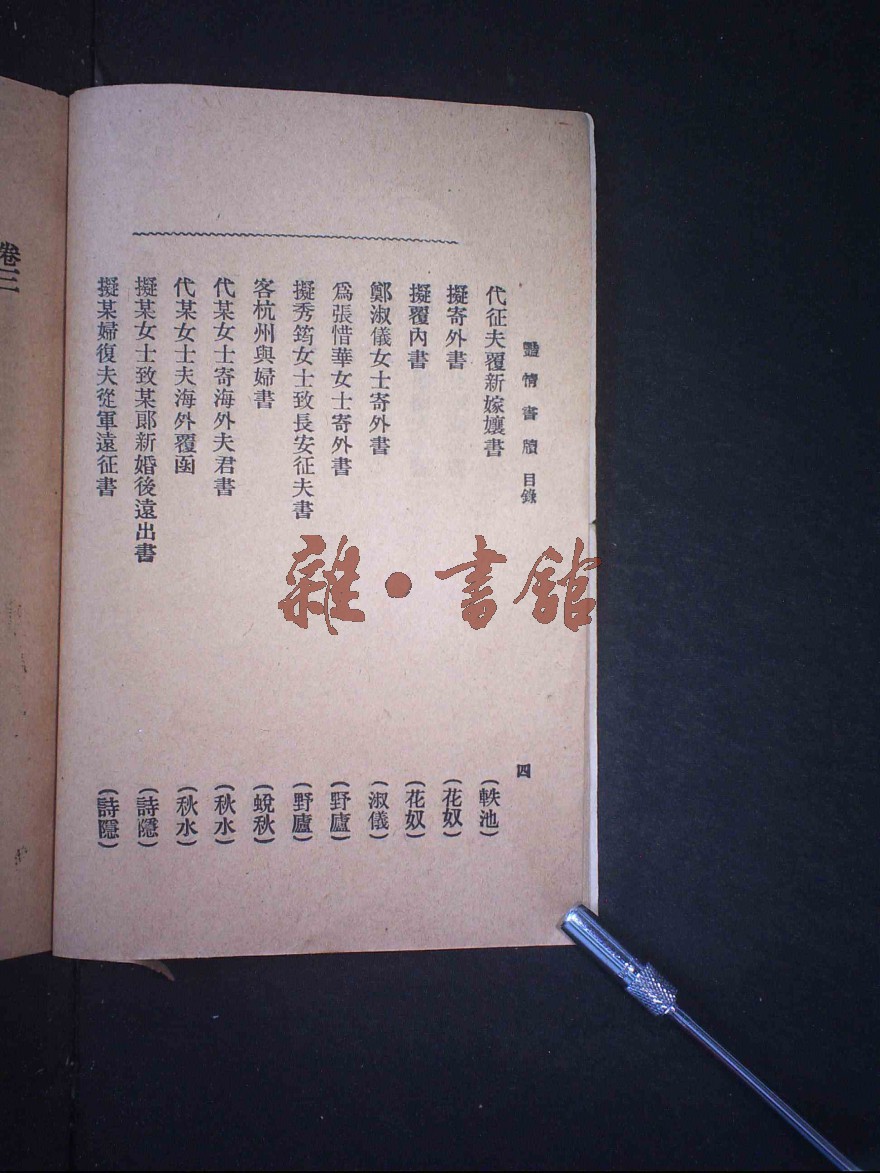 豔情書牘 目錄
四
代征夫覆新嫁孃書 (軼池)
擬寄外書 (花奴)
擬覆內書 (花奴)
鄭淑儀女士寄外書 (淑儀)
爲張惜華女士寄外書 (野廬)
擬秀筠女士致長安征夫書 (野廬)
客杭州與婦書 (蛻秋)
代某女士寄海外夫君書 (秋水)
代某女士夫海外覆函 (秋水)
擬某女士致某郞新婚後遠出書 (詩隱)
擬某婦復夫從軍遠征書 (詩隱)
卷三
雜·書館